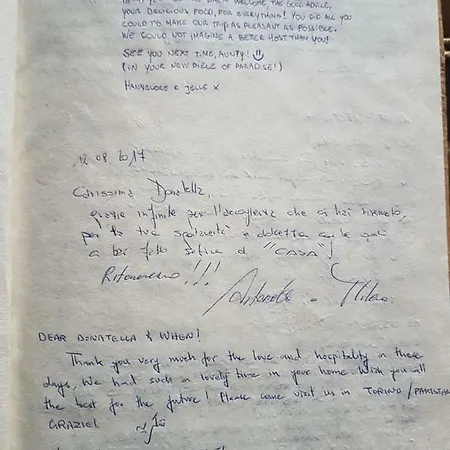 THE WARM WELCOME, THE GOOD ADVICE,
YOUR DELICIOUS FOOD, FOR EVERYTHING! YOU DID ALL YOU
COULD TO MAKE OUR TRIP AS PLEASANT AS POSSIBLE.
WE COULD NOT IMAGINE A BETER HOST THAN YOU!
SEE YOU NEXT TIME, AUNTY! ☺
(IN YOUR NEW PIECE OF PARADISE!)
HANNELORE & JELLS X
12.08.2017
Carissima Donatella,
grazie infinite per l'accoglienza che ci hai riservato,
per la tua spontaneità e dolcezza con le quali
ci hai fatto sentire a "CASA"!
Ritorneremo!!!
DEAR DONATELLA & WHEN!
Thank you very much for the love and hospitality in these
days. We had such a lovely time in your home. Wish you all
the best for the future! Please come visit us in TORINO/PAKISTAN
GRAZIE!